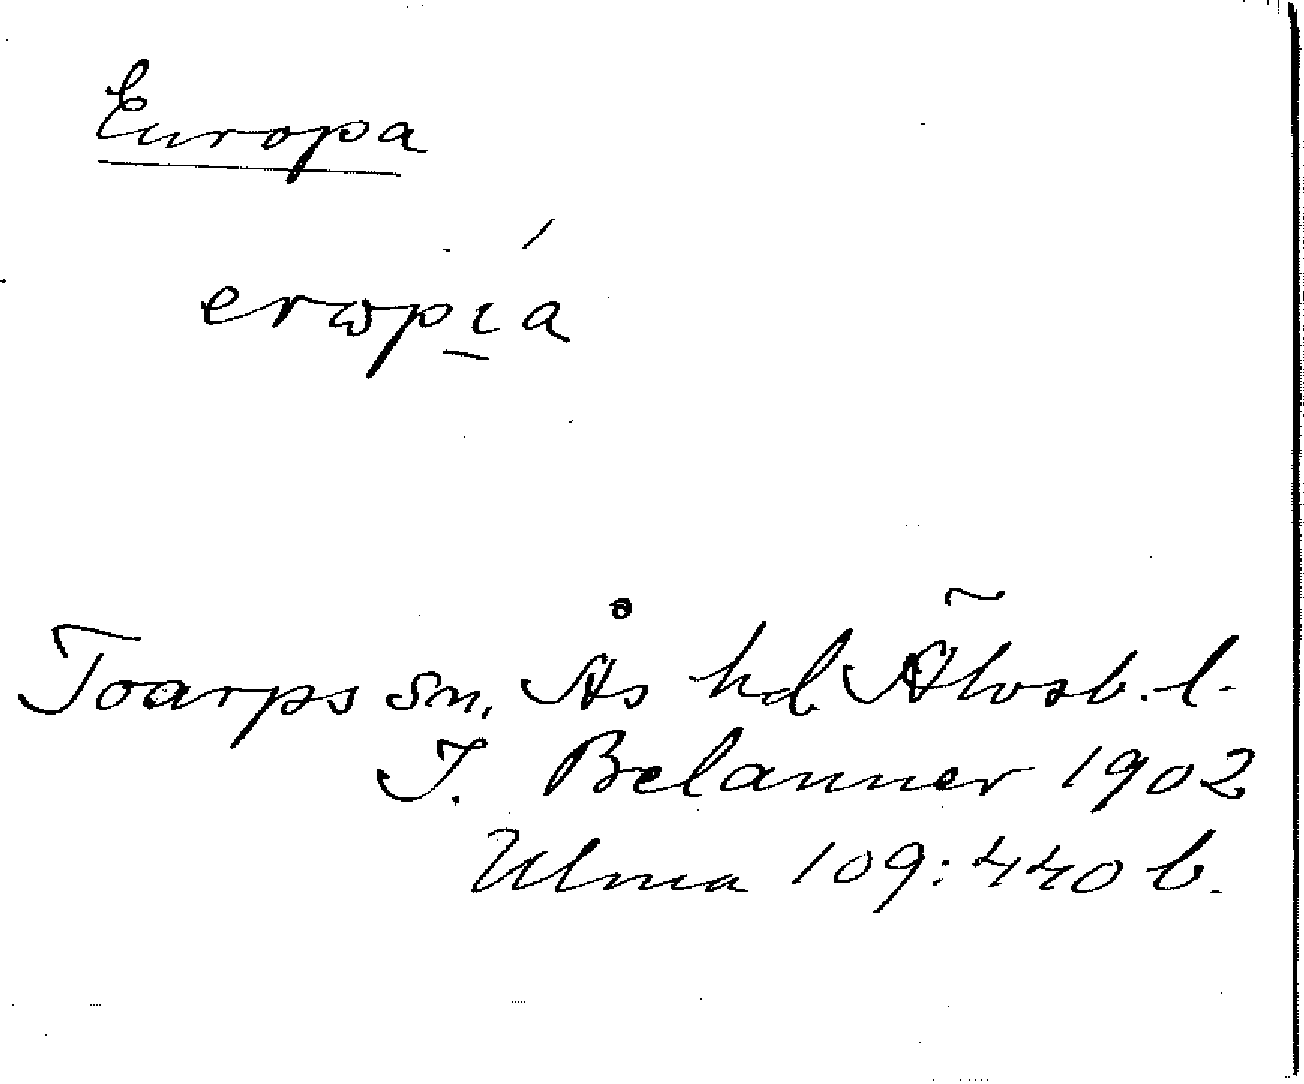 Europa
erωpı̱́a
Toarps sn, Ås hd. Älvsb. l.
J. Belanner 1902
Ulma 109:440 b.